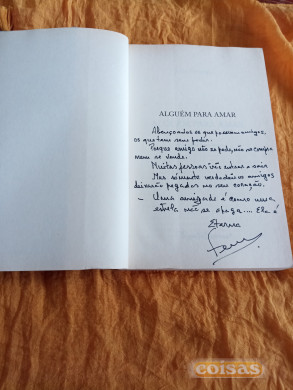 ALGUÉM PARA AMAR
Abençoados os que possuem amigos,
os que tem sem pedir.
Porque amigo não se pede, não se compra
nem se vende.
Muitas pessoas vão entrar e sair
Mas somente verdadeiros amigos
deixarão pegadas no seu coração.
- Uma amizade é como uma
estrela não se apaga.... Ela é
Eterna
coisas